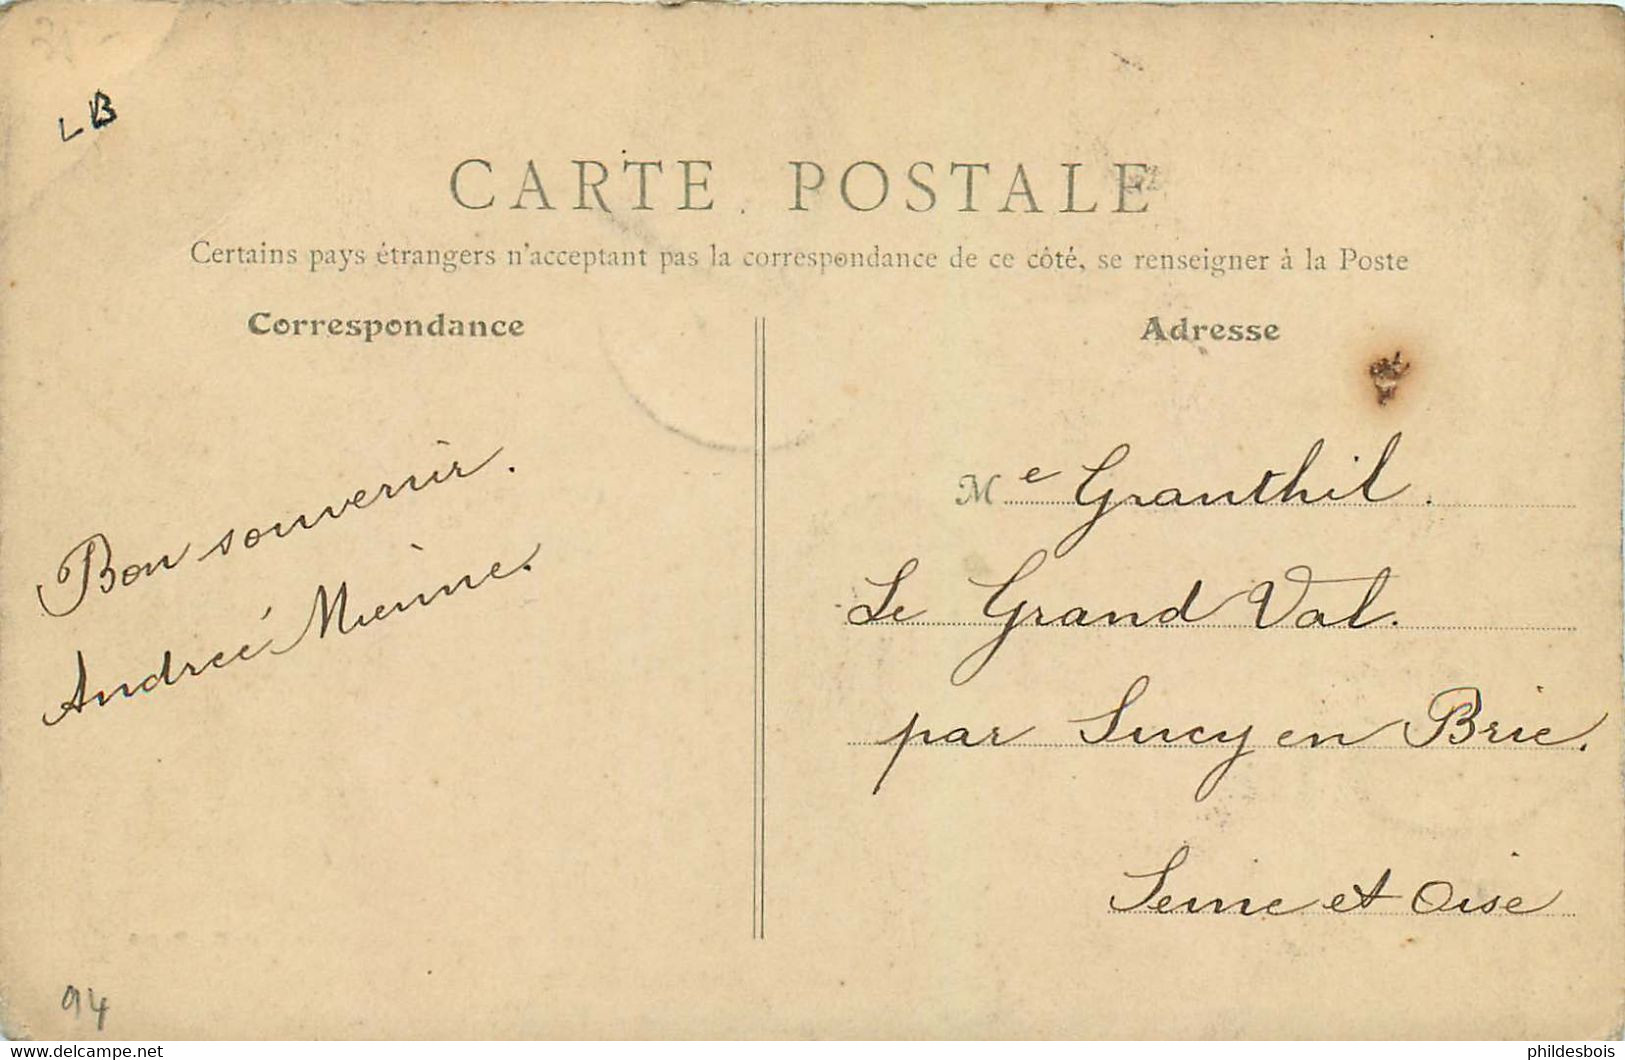 LB
CARTE POSTALE
Certains pays étrangers n'acceptant pas la correspondance de ce côté, se renseigner à la Poste
Correspondance
Bon souvenir.
Andrée
Adresse
Me Granthil.
Le Grand Val.
par Sucy en Brie.
Seine et Oise
94
www.delcampe.net
phildesbois